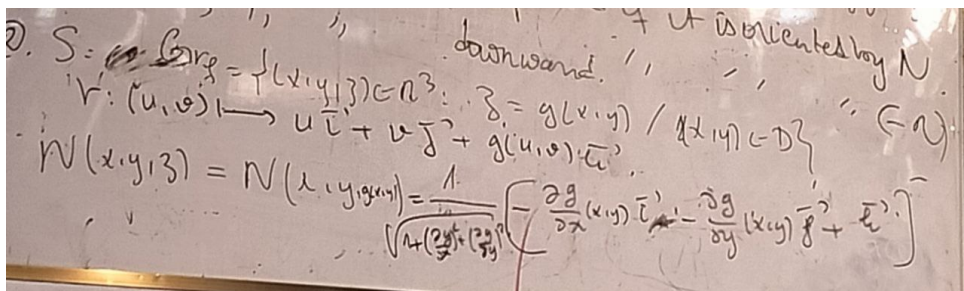 if it is oriented by N
downward. ,, ,, ,, (-N)
2. S: Gr g = {(x,y,z) ∈ R³ : z = g(x,y) / (x,y) ∈ D}
r : (u,v) ⟼ u i⃗ + v j⃗ + g(u,v) k⃗.
N(x,y,z) = N(x,y,g(x,y)) = 1/√(1+(∂g/∂x)²+(∂g/∂y)²) [-∂g/∂x (x,y) i⃗ - ∂g/∂y (x,y) j⃗ + k⃗]